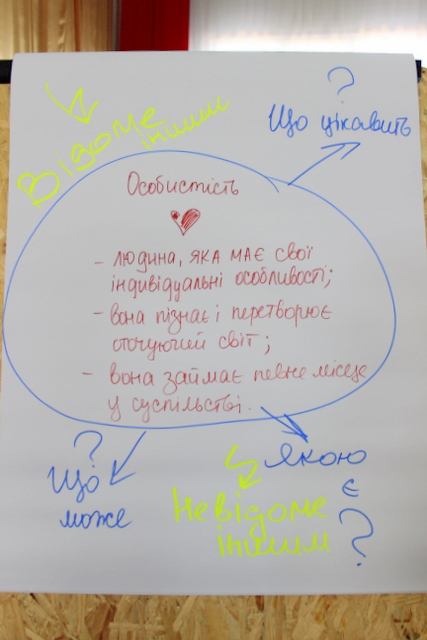 ?
Що цікавить
Відоме
іншим
Особистість
- людина, яка має свої
індивідуальні особливості;
- вона пізнає і перетворює
оточуючий світ;
- вона займає певне місце
у суспільстві.
?
Що
може
Якою
є
?
Невідоме
іншим